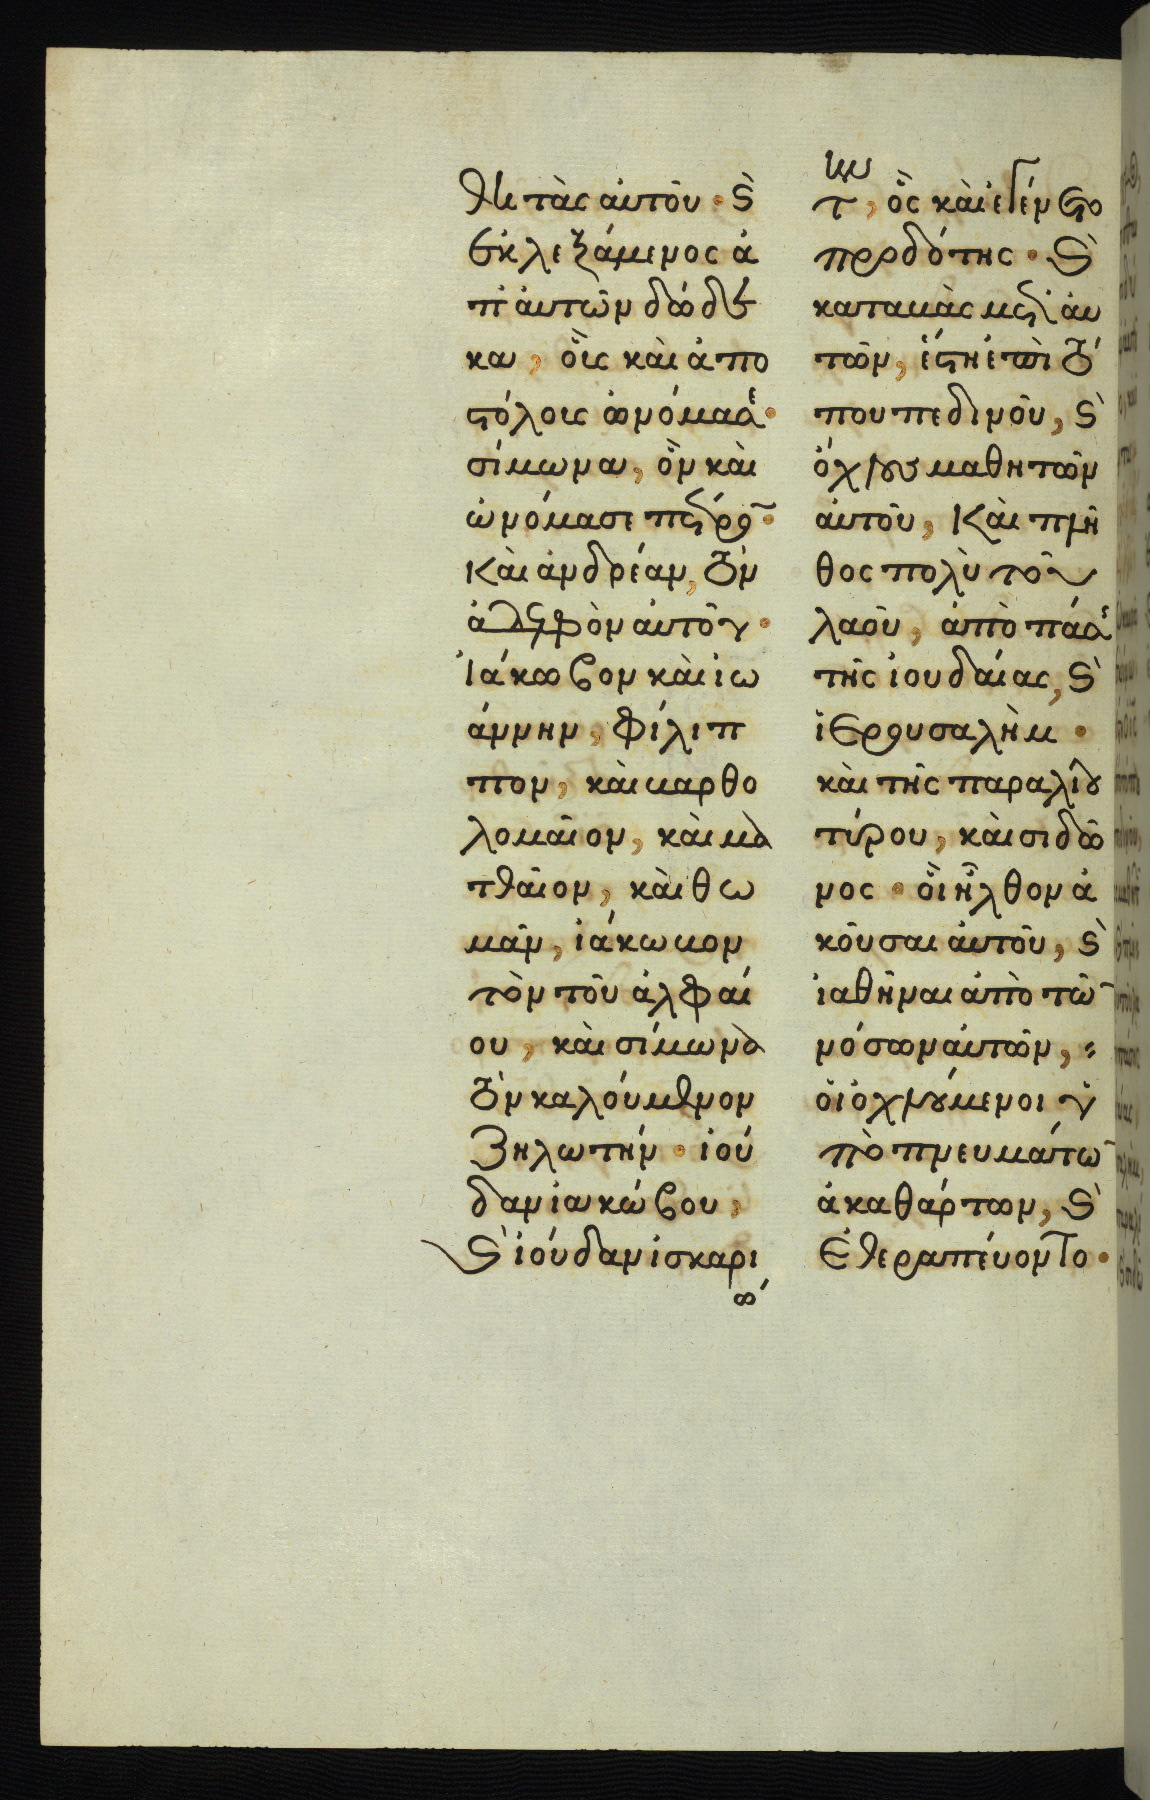 θητὰς αὐτοῦ · ϗ̀
ἐκλεξάμενος ἀ
π' αὐτῶν δώδε
κα, οἷς καὶ ἀπο
στόλους ὠνόμασε ·
σίμωνα, ὃν καὶ
ὠνόμασε πέτρον ·
καὶ ἀνδρέαν, τὸν
ἀδελφὸν αὐτοῦ ·
ἰάκωβον καὶ ἰω
άννην, φίλιπ
πον, καὶ βαρθο
λομαῖον, καὶ μα
τθαῖον, καὶ θω
μᾶν, ἰάκωβον
τὸν τοῦ ἀλφαί
ου, καὶ σίμωνα
τὸν καλούμενον
ζηλωτήν · ἰού
δαν ἰακώβου,
ϗ̀ ἰούδαν ἰσκαρι
ώ
τ, ὃς καὶ ἐγένετο
προδότης · ϗ̀
καταβὰς μετ' αὐ
τῶν, ἔστη ἐπὶ τό
που πεδινοῦ, ϗ̀
ὄχλου μαθητῶν
αὐτοῦ, καὶ πλῆ
θος πολὺ τοῦ
λαοῦ, ἀπὸ πάσης
τῆς ἰουδαίας, ϗ̀
ἱερουσαλὴμ ·
καὶ τῆς παραλίου
τύρου, καὶ σιδῶ
νος · οἳ ἦλθον ἀ
κοῦσαι αὐτοῦ, ϗ̀
ἰαθῆναι ἀπὸ τῶν
νόσων αὐτῶν,
οἱ ὀχλούμενοι ὑ
πὸ πνευμάτων
ἀκαθάρτων, ϗ̀
ἐθεραπεύοντο ·